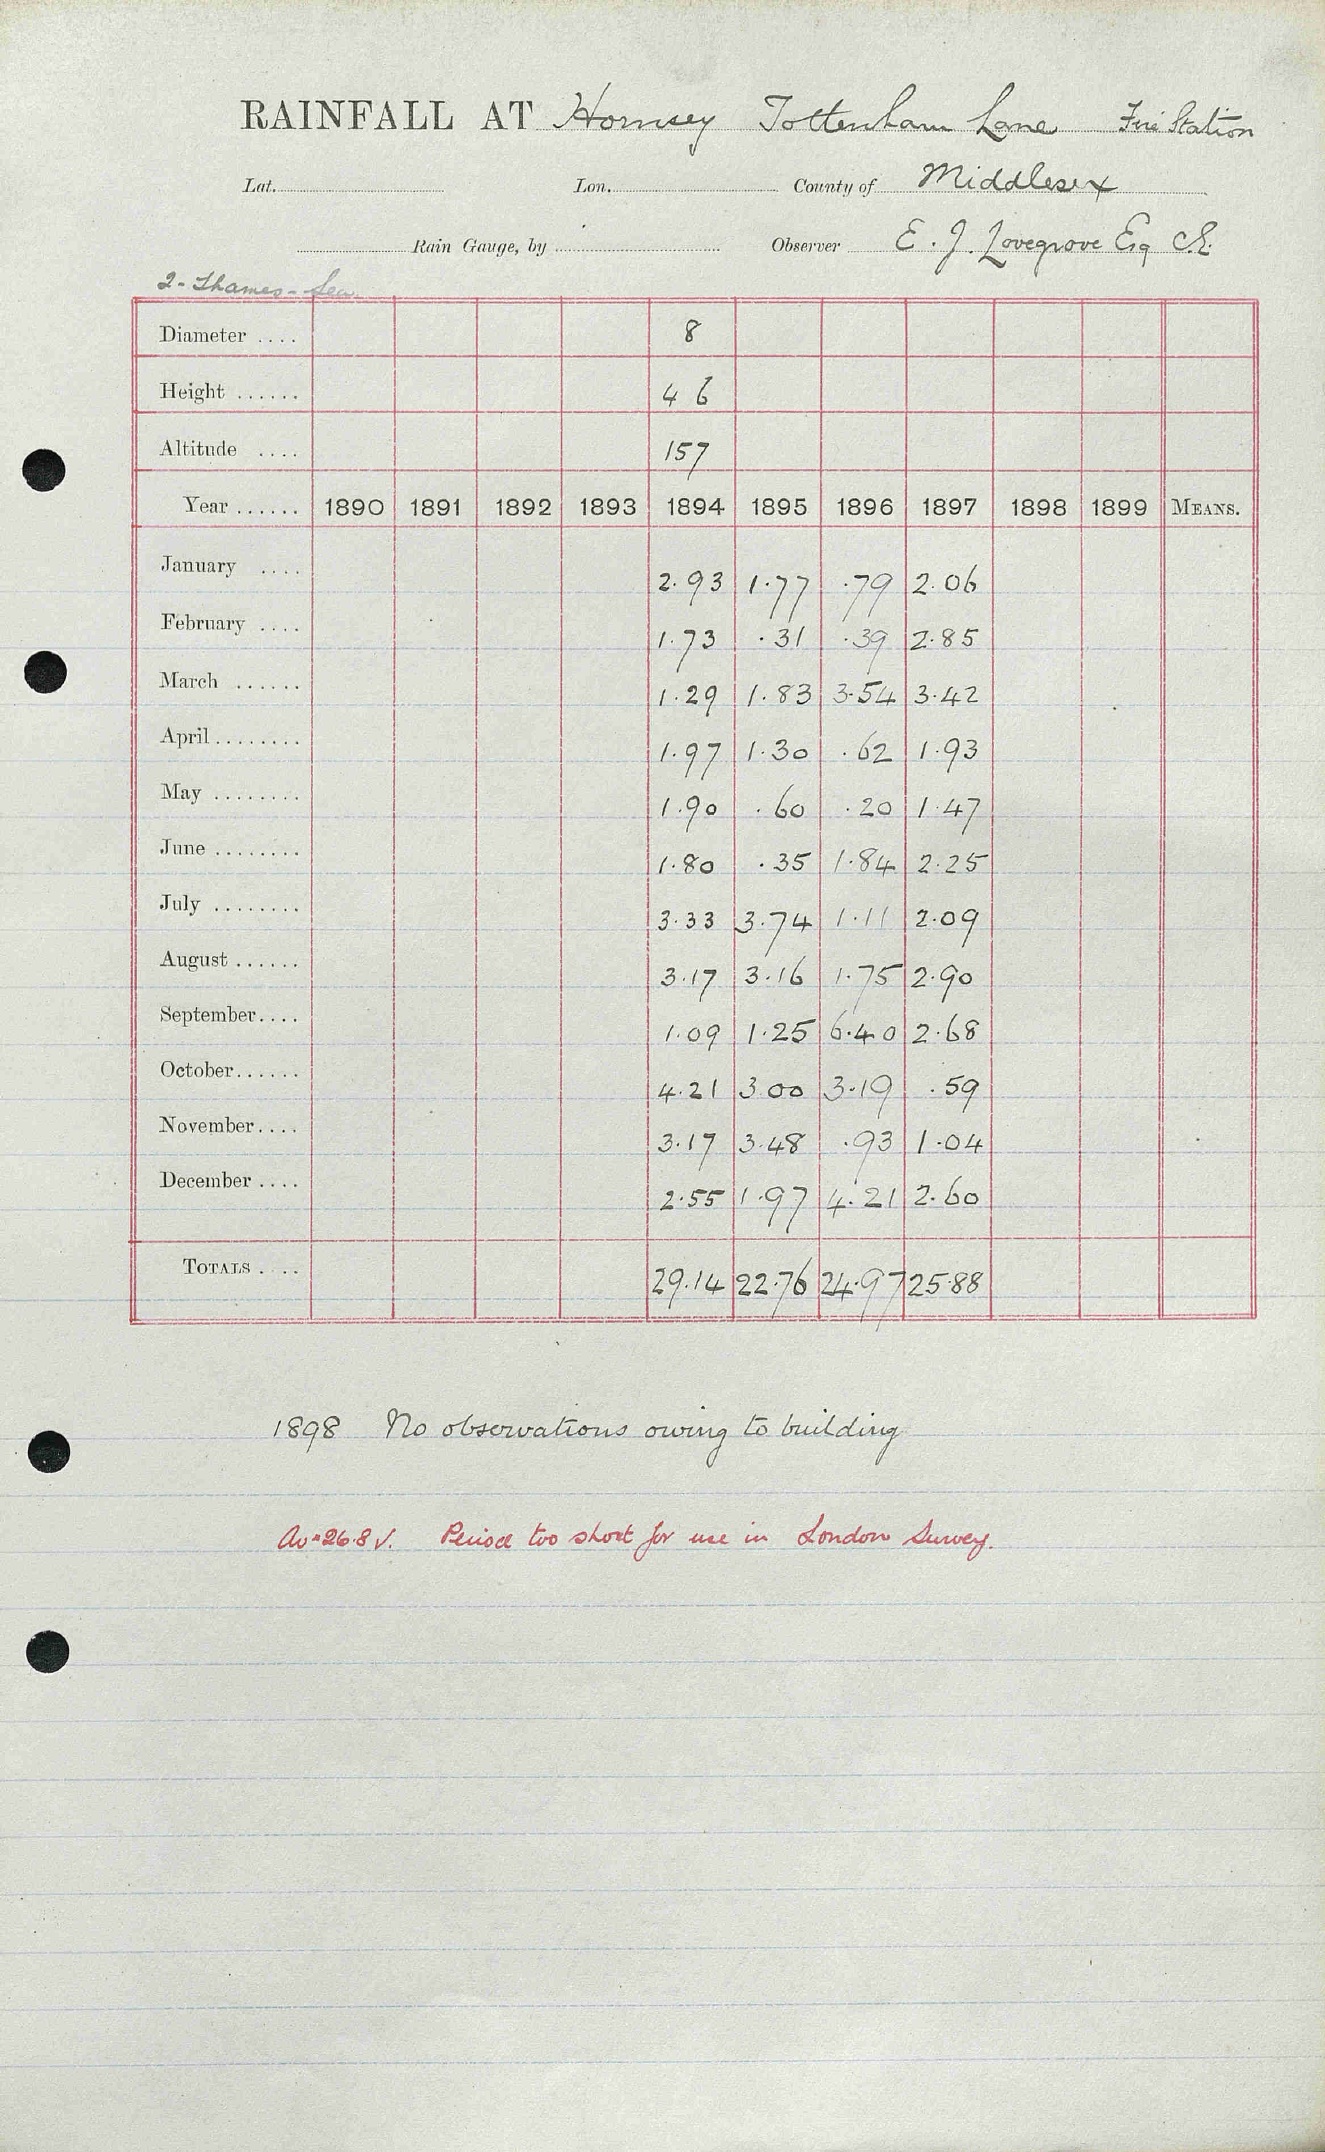 RAINFALL AT Hornsey Tottenham Lane Fire Station
Lat. Lon. County of Middlesex
Rain Gauge, by Observer E. J. Lovegrove Esq C.E.
2 - Thames - Lea
Diameter .... 8
Height ...... 4 6
Altitude .... 157
Year ...... 1890 1891 1892 1893 1894 1895 1896 1897 1898 1899 MEANS.
January .... 2.93 1.77 .79 2.06
February .... 1.73 .31 .39 2.85
March ...... 1.29 1.83 3.54 3.42
April ........ 1.97 1.30 .62 1.93
May ........ 1.90 .60 .20 1.47
June ........ 1.80 .35 1.84 2.25
July ........ 3.33 3.74 1.11 2.09
August ...... 3.17 3.16 1.75 2.90
September.... 1.09 1.25 6.40 2.68
October...... 4.21 3.00 3.19 .59
November.... 3.17 3.48 .93 1.04
December .... 2.55 1.97 4.21 2.60
TOTALS .... 29.14 22.76 24.97 25.88
1898 No observations owing to building
Av = 26.8 √. Period too short for use in London Survey.